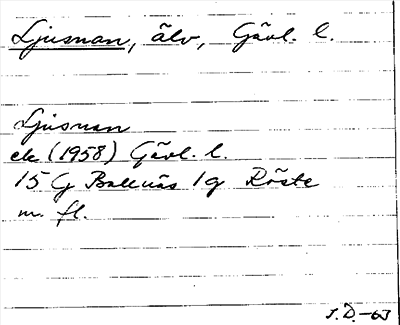 Ljusnan, älv, Gävl. l.
Ljusnan
ek (1958) Gävl. l.
15 G Ballnäs 1g Röste
m. fl.
J.D.-63